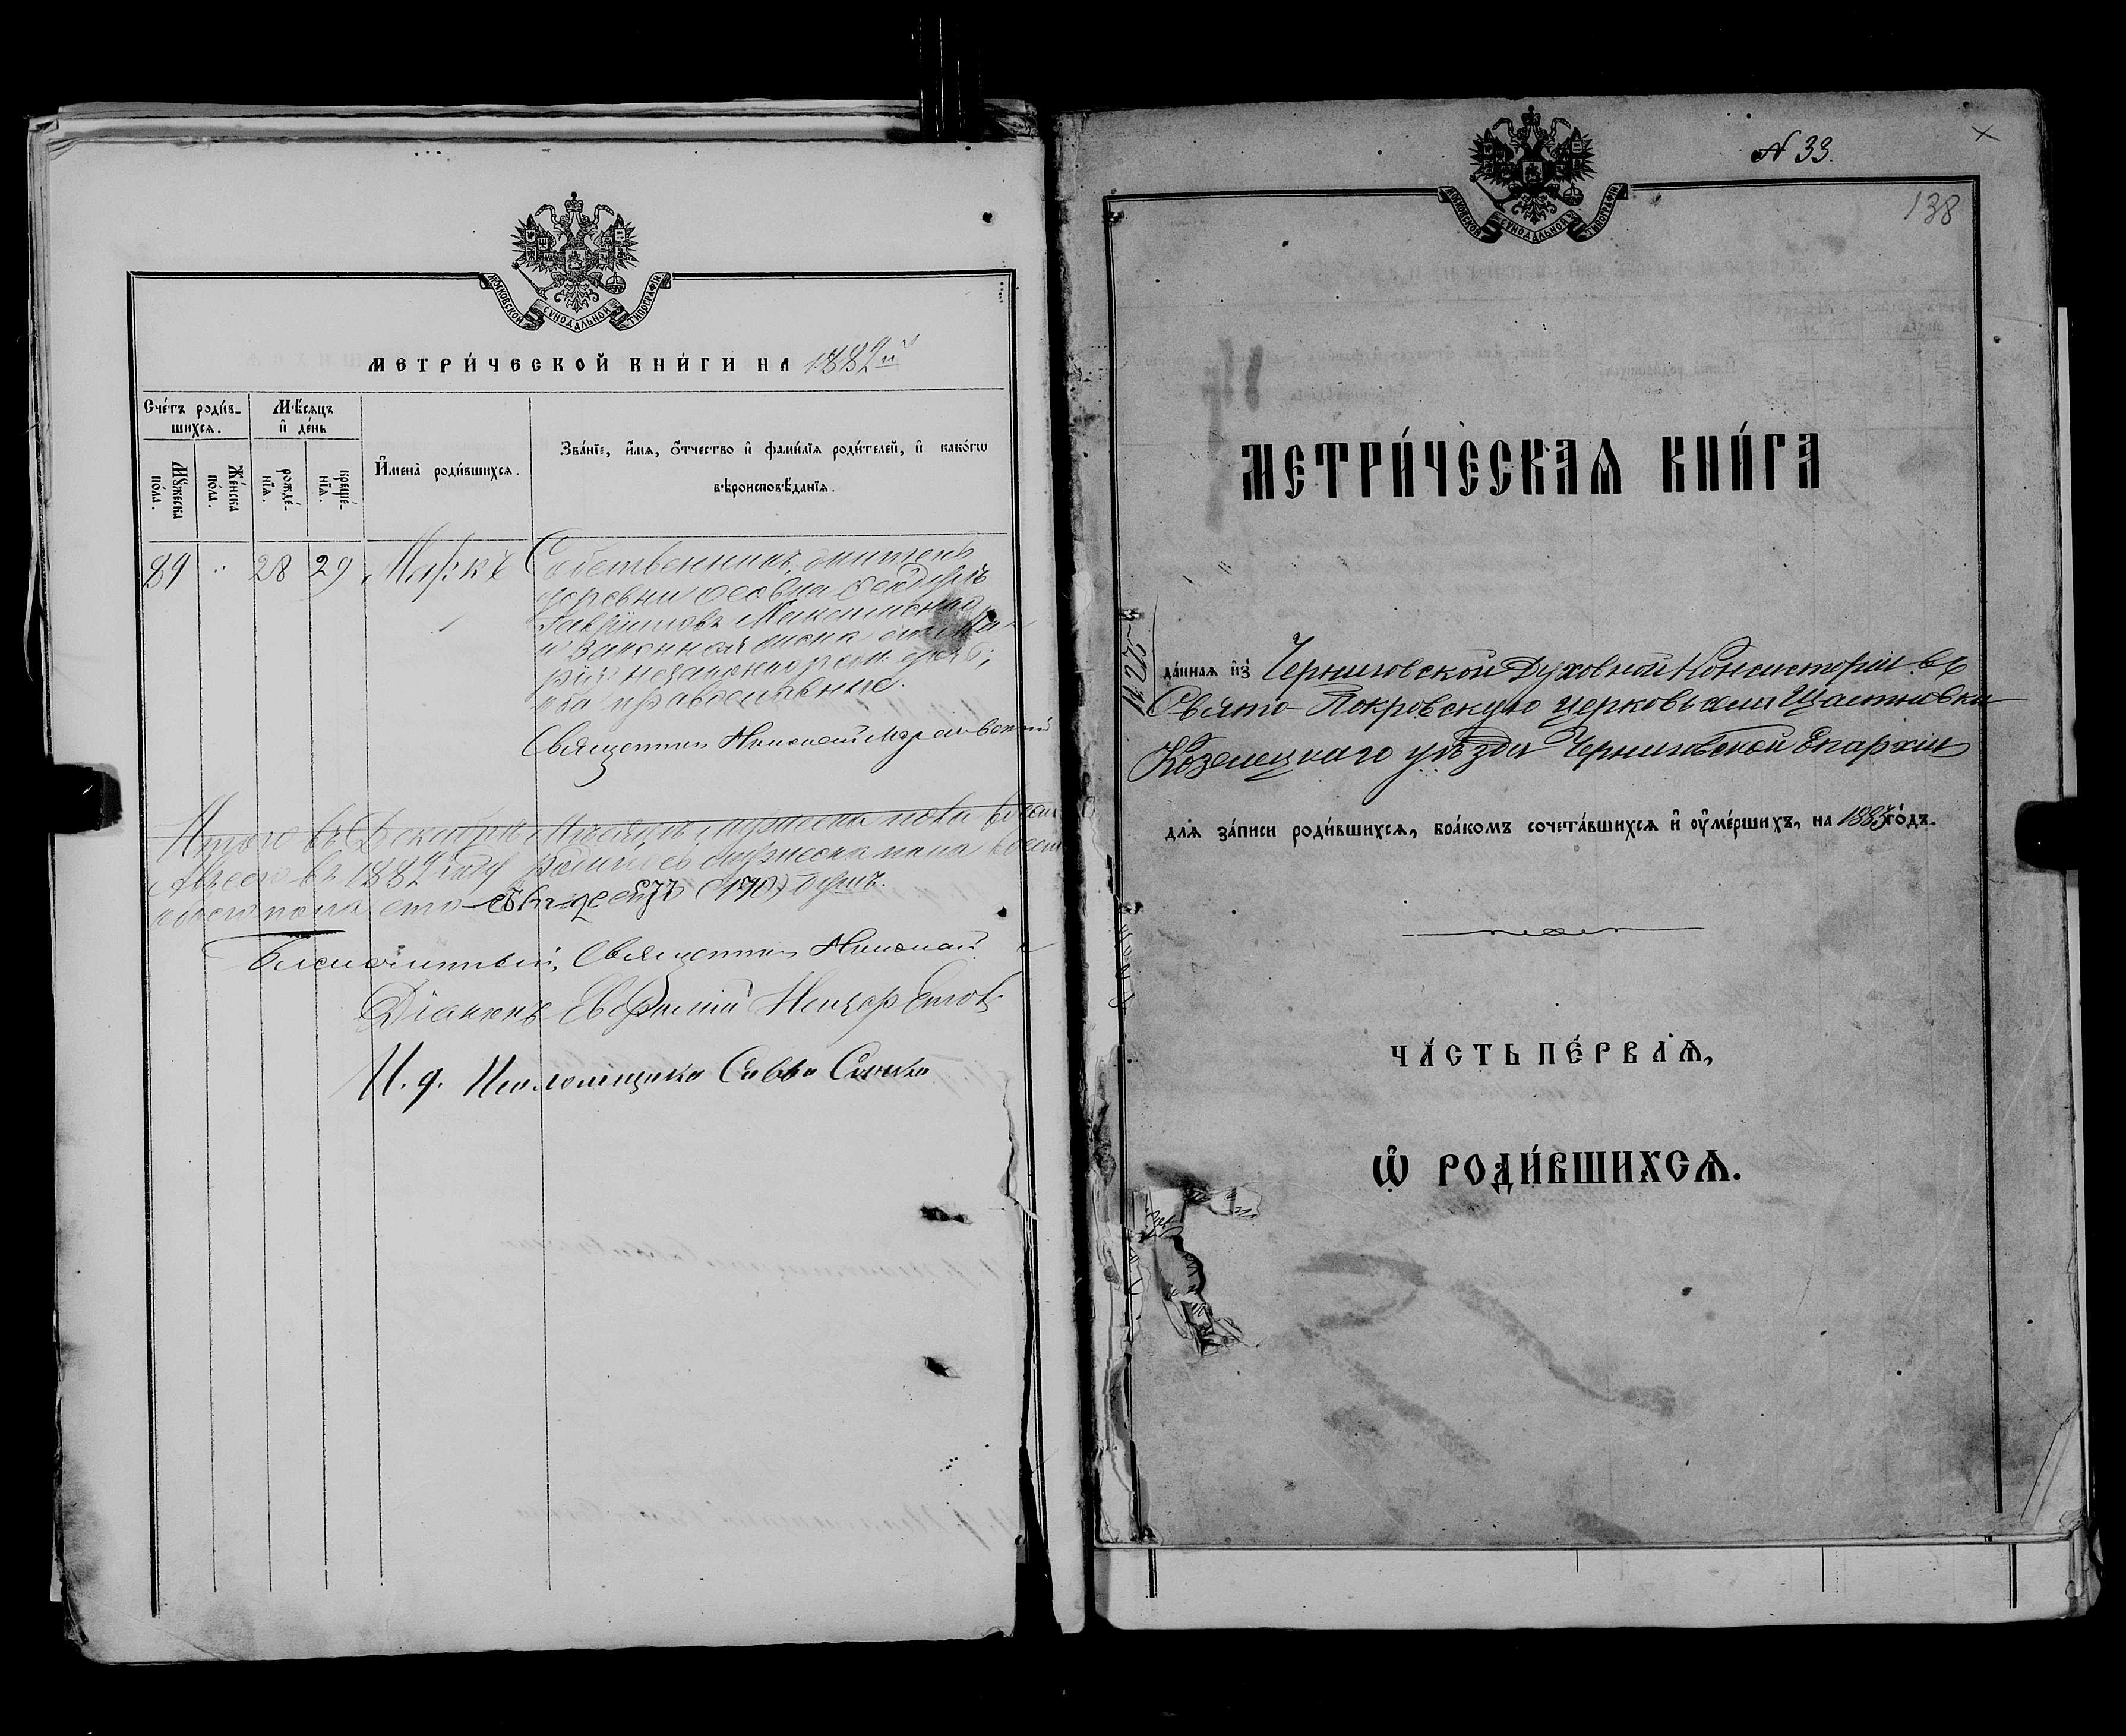 МОСКОВСКОЙ СѴНОДАЛЬНОЙ ТИПОГРАФІИ
МЕТРИ́ЧЕСКОЙ КНИ́ГИ НА 1882й
Сче́тъ роди́вшихся.
Мѣ́сяцъ и҆ де́нь
Мꙋ́жеска по́ла.
Же́нска по́ла.
рожде́нїѧ.
креще́нїѧ.
И҆мена̀ роди́вшихсѧ.
Зва́нїе, и҆́мѧ, ѻ҆́тчество и҆ фами́лїѧ роди́телей, и҆ како́гѡ
вѣроисповѣ́данїѧ.
89 " 28 29 Маркъ
Собственникъ, житель
деревни
Гавриловъ Максименко
и законная жена его Ма-
рія
оба православные.
Священникъ Николай
Итого въ Декабрѣ мѣсяцѣ мужеска пола
А всего въ 1882 году родилось мужеска пола
обоего пола сто семьдесятъ (170) душъ.
Благочинный, Священникъ Николай
Діаконъ Евфимій
И. д. Псаломщика Савва
МОСКОВСКОЙ СѴНОДАЛЬНОЙ ТИПОГРАФІИ
N 33.
138
МЕТРИ́ЧЕСКАѦ КНИ́ГА
да́ннаѧ и҆з̾ Черниговской Духовной Консисторіи въ
Свято-Покровскую церковь села Щастновки
Козелецкаго уѣзда Черниговской Епархіи
длѧ за́писи роди́вшихсѧ, бра́комъ сочета́вшихсѧ и҆ ᲂу҆ме́ршихъ, на 1883 го́дъ.
ЧА́СТЬ ПЕ́РВАѦ,
Ѽ РОДИ́ВШИХСѦ.